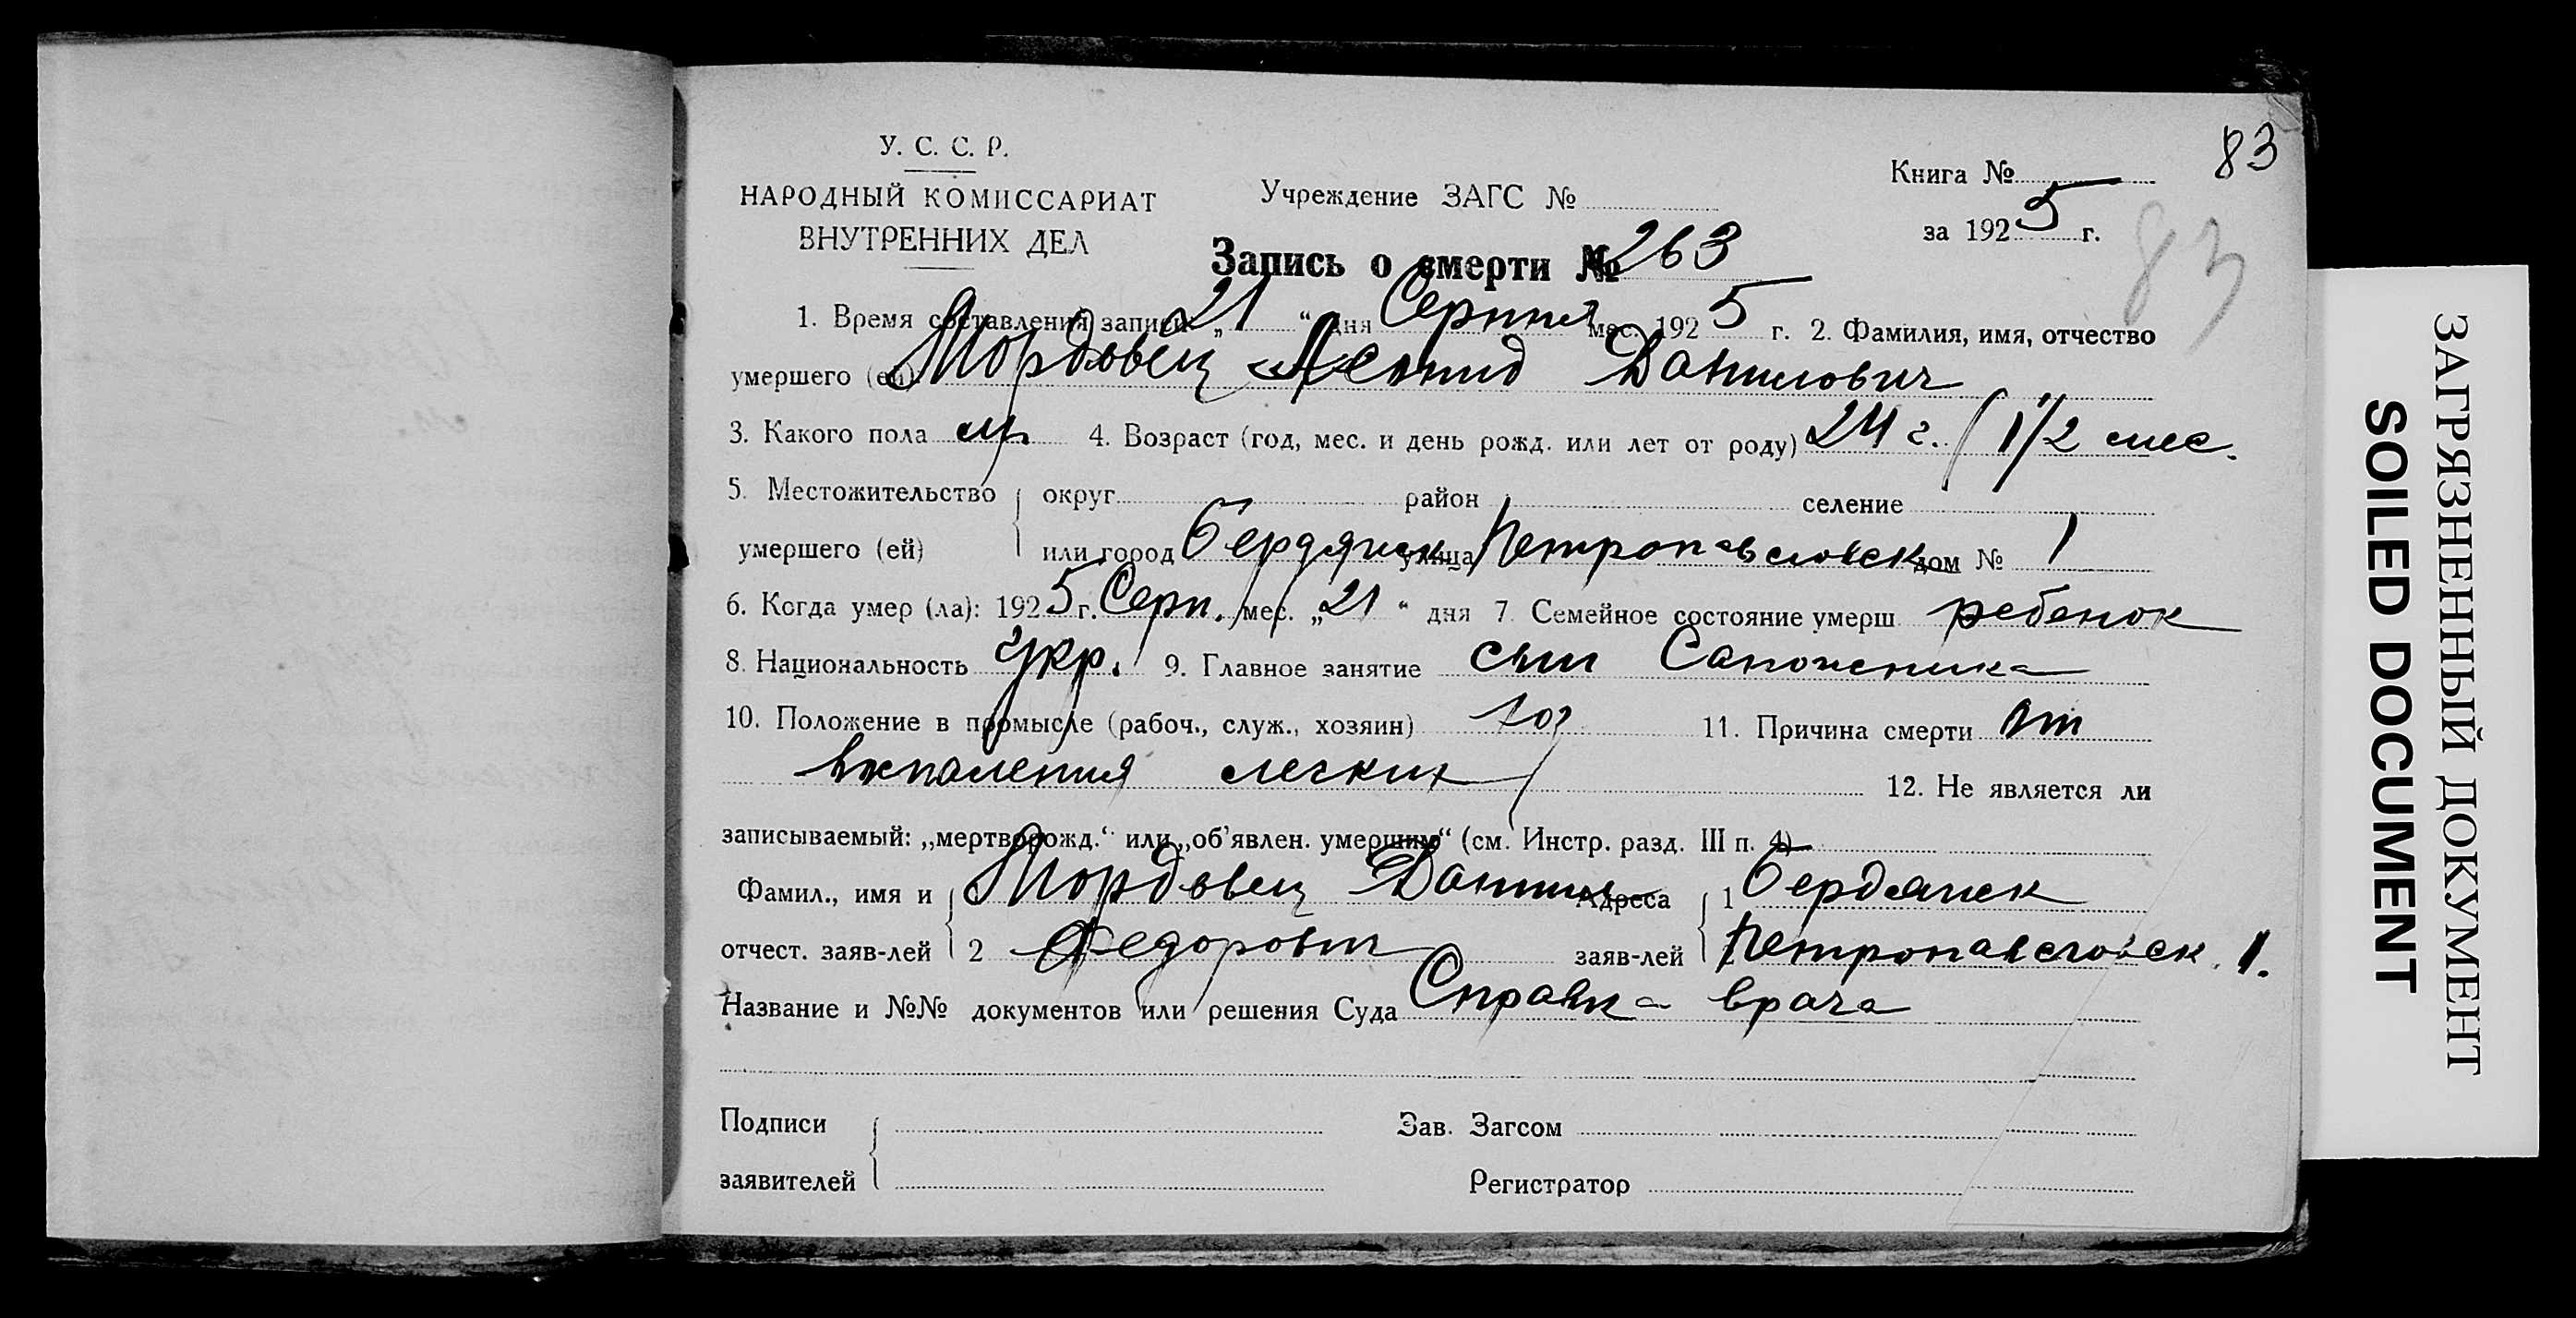 83
У. С. С. Р.
НАРОДНЫЙ КОМИССАРИАТ
ВНУТРЕННИХ ДЕЛ
Учреждение ЗАГС №
Книга №
за 1925 г.
83
Запись о смерти № 263
1. Время составления записи „21“ дня Серпня мес. 1925 г. 2. Фамилия, имя, отчество
умершего (ей) Мордовец Леонид Данилович
3. Какого пола м. 4. Возраст (год, мес. и день рожд. или лет от роду) 24 г. / 1 1/2 мес.
5. Местожительство умершего (ей) округ район селение
или город Бердянск улица Петропавловск дом № 1
6. Когда умер (ла): 1925 г. Серп. мес. „21“ дня 7. Семейное состояние умерш ребенок
8. Национальность Укр. 9. Главное занятие сын Сапожника
10. Положение в промысле (рабоч., служ., хозяин) хоз 11. Причина смерти от
воспаления легких 12. Не является ли
записываемый: „мертворожд.“ или „об'явлен. умершим“ (см. Инстр. разд. III п. 4)
Фамил., имя и Мордовец Данил Адреса 1 Бердянск
отчест. заяв-лей 2 Федорович заяв-лей Петропавловск. 1.
Название и №№ документов или решения Суда Справка врача
Подписи Зав. Загсом
заявителей Регистратор
ЗАГРЯЗНЕННЫЙ ДОКУМЕНТ
SOILED DOCUMENT